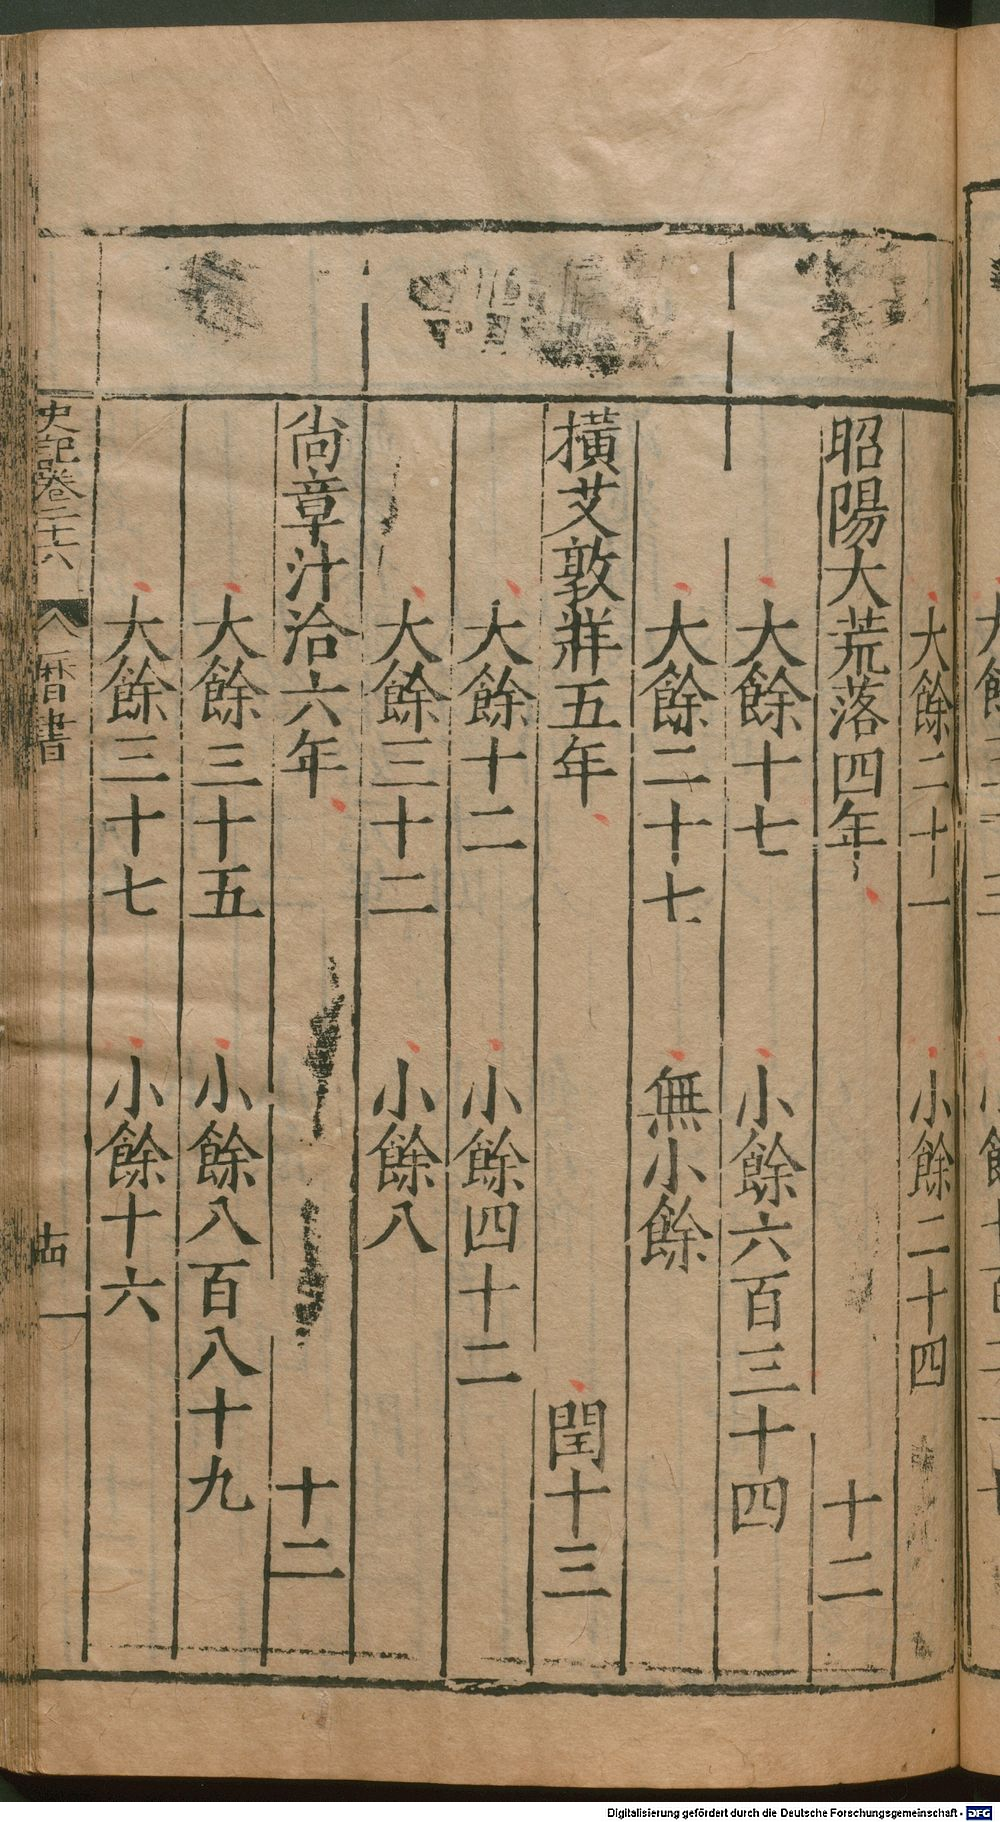 大餘二十一 小餘二十四
昭陽大荒落四年 十二
大餘十七 小餘六百三十四
大餘二十七 無小餘
橫艾敦牂五年 閏十三
大餘十二 小餘四十二
大餘三十二 小餘八
尙章汁洽六年 十二
大餘三十五 小餘八百八十九
大餘三十七 小餘十六
史記卷二十六 曆書
Digitalisierung gefördert durch die Deutsche Forschungsgemeinschaft - DFG